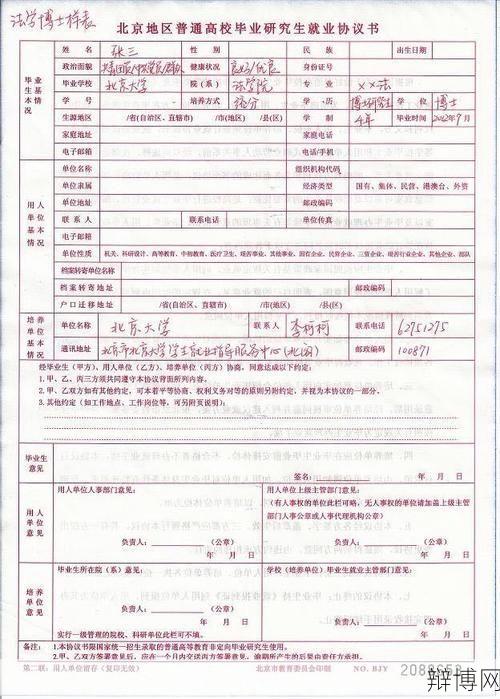 法学博士样表
北京地区普通高校毕业研究生就业协议书
毕业生基本情况
姓名 张三 性别 民族 出生日期
政治面貌 共青团员/中共党员/群众 健康状况 良好/优良 身份证号
毕业学校 北京大学 院(系) 法学院 专业 ××法
学号 培养方式 统分 学历 博士研究生 学位 博士
生源地区 省(自治区、直辖市) 市(地区) /县(区) 学制 4年 毕业时间 2012年7月
家庭地址 家庭电话
电子邮箱 电话/手机
用人单位基本情况
单位名称 组织机构代码
单位隶属 经济类型 国有、集体、民营、港澳台、外资
单位地址 邮政编码
联系人 联系电话 单位传真
电子邮箱
单位性质 机关、科研设计、高等教育、中初教育、医疗卫生、艰苦事业、其他事业、国有企业、民营企业、三资企业、艰苦行业企业、其他企业、部队
档案转寄单位名称
档案转寄地址 邮政编码
户口迁移地址 /省(自治区、直辖市) /市(地区) /县(区)
培养单位情况
单位名称 北京大学 联系人 李柯柯 联系电话 62751275
通讯地址 北京市北京大学学生就业指导服务中心(北阁) 邮政编码 100871
经毕业生(甲方)、用人单位(乙方)、培养单位(丙方)协商,同意达成以下约定:
1. 甲、乙、丙三方须共同遵守本协议背面所列内容。
2. 甲、乙双方如有其他约定,可本着平等协商、权利义务对等的原则另附约定,并视为本协议的一部分。
3. 其他约定(如工作地点、工作岗位等,可另附页说明):
毕业生意见
签名:
年 月 日
用人单位意见
用人单位人事部门意见:
负责人: (公章)
年 月 日
用人单位上级主管部门意见:
(有人事权的单位此栏可略,无人事权的单位请加盖上级主管部门人事公章或人事代理机构公章)
负责人: (公章)
年 月 日
培养单位意见
毕业生所在院(系)意见:
负责人: (公章)
年 月 日
实行一级管理的院校、科研单位此栏可不填。
学校(培养单位)毕业生就业主管部门意见:
负责人: (公章)
年 月 日
备注:
1. 本协议书限国家统一招生录取的普通高等教育非定向毕业研究生使用。
2. 甲、乙双方签署意见后,应在一个月内交送丙方签署意见,逾期所产生的后果由责任方承担。
第二联:用人单位留存(复印无效) 北京市教育委员会印制 NO. BJY
辩博网